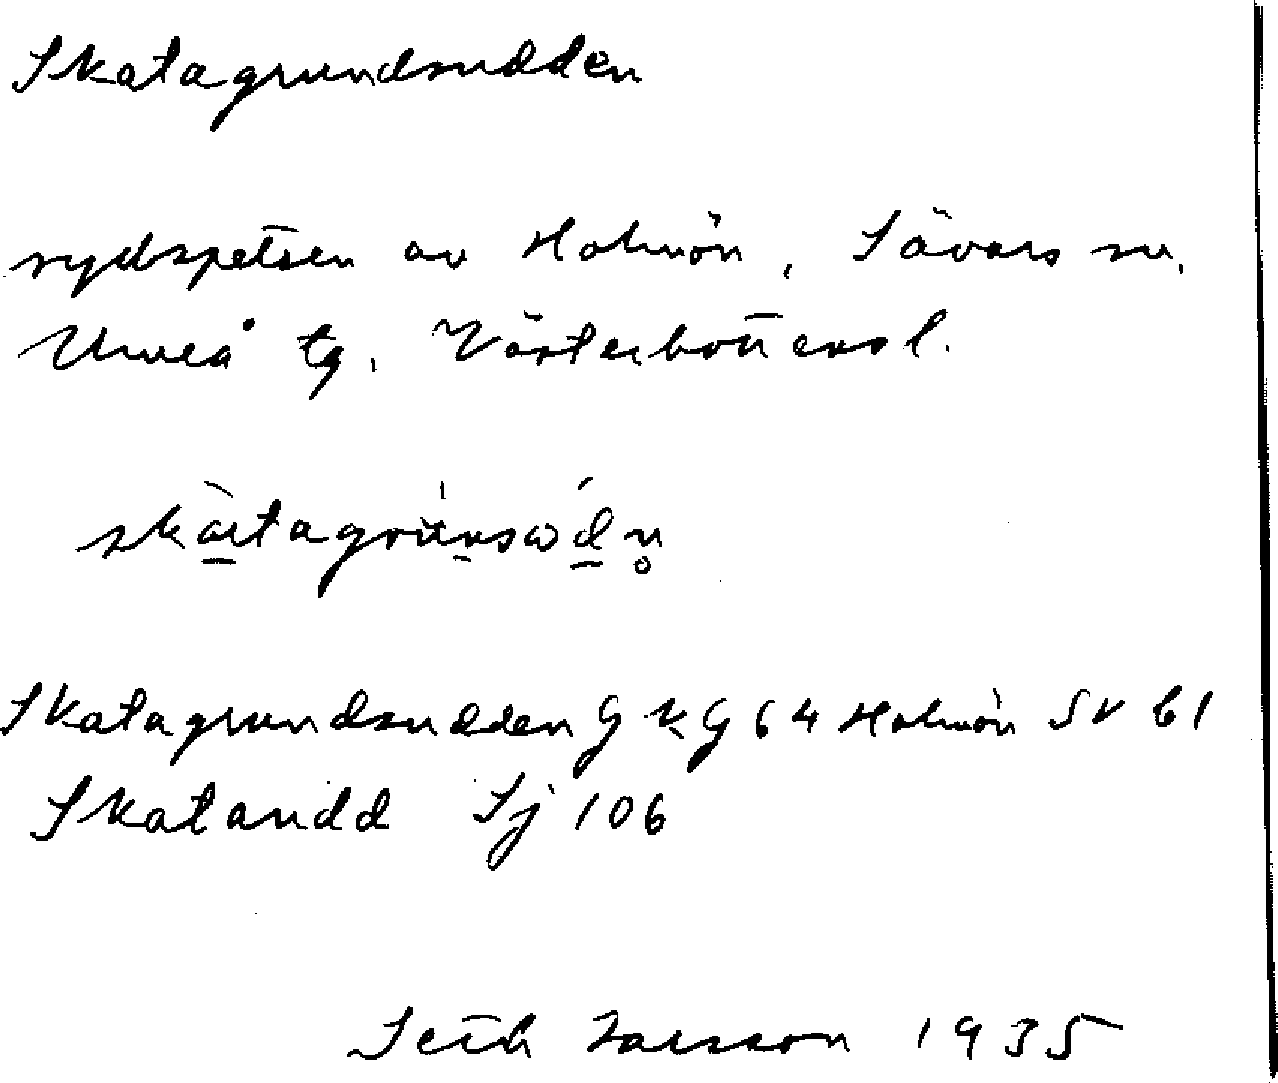 Skatagrundsudden
sydspetsen av Holmön, Sävars sn,
Umeå tg, Västerbottens l.
Skatagrundsudden GKG 64 Holmön SV b1
Skatandd Sj 106
Seth Larsson 1935